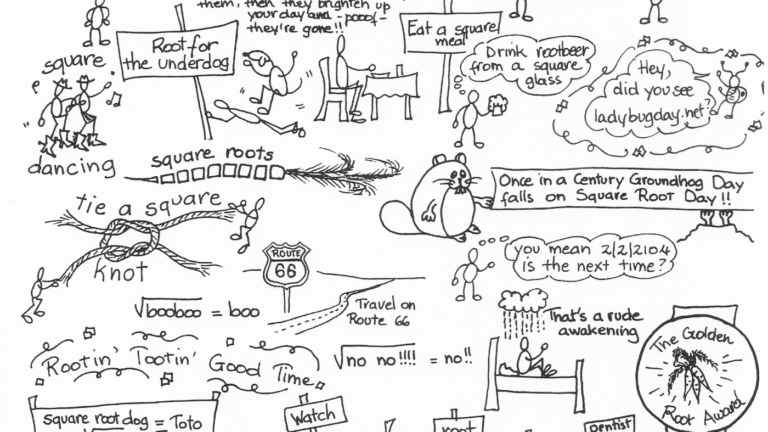 them, then they brighten up
your day and -pooof-
they're gone!!
Root for
the underdog
Eat a square
meal
Drink rootbeer
from a square
glass
Hey,
did you see
ladybugday.net?
square
dancing
square roots
Once in a Century Groundhog Day
falls on Square Root Day!!
tie a square
knot
ROUTE
66
you mean 2/2/2104
is the next time?
√booboo = boo
Travel on
Route 66
That's a rude
awakening
The Golden
Root Award
Rootin' Tootin'
Good Time
√no no!!!! = no!!
square root dog = Toto
watch
root
Dentist